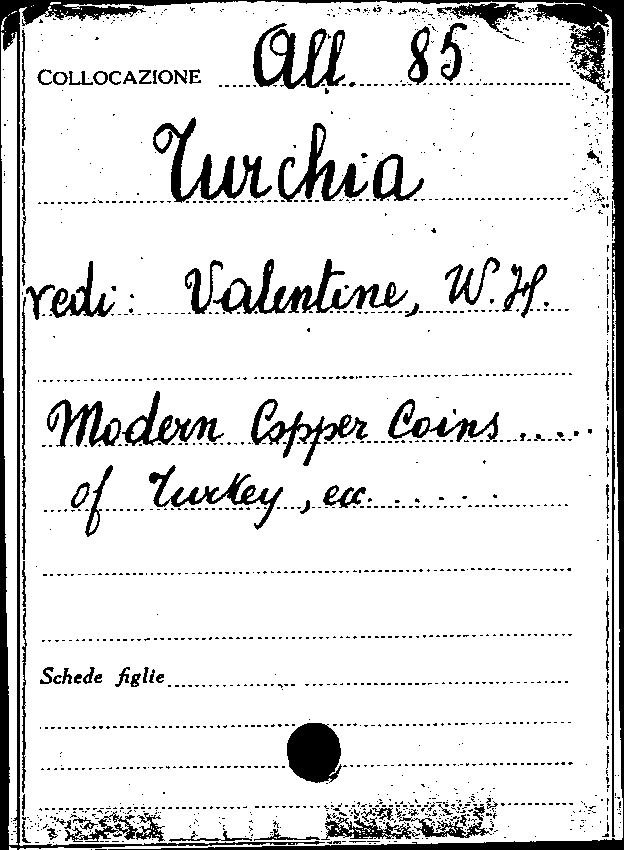 COLLOCAZIONE All. 85
Turchia
vedi: Valentine, W. H.
Modern Copper Coins .....
of Turkey, ecc. . . . . .
Schede figlie